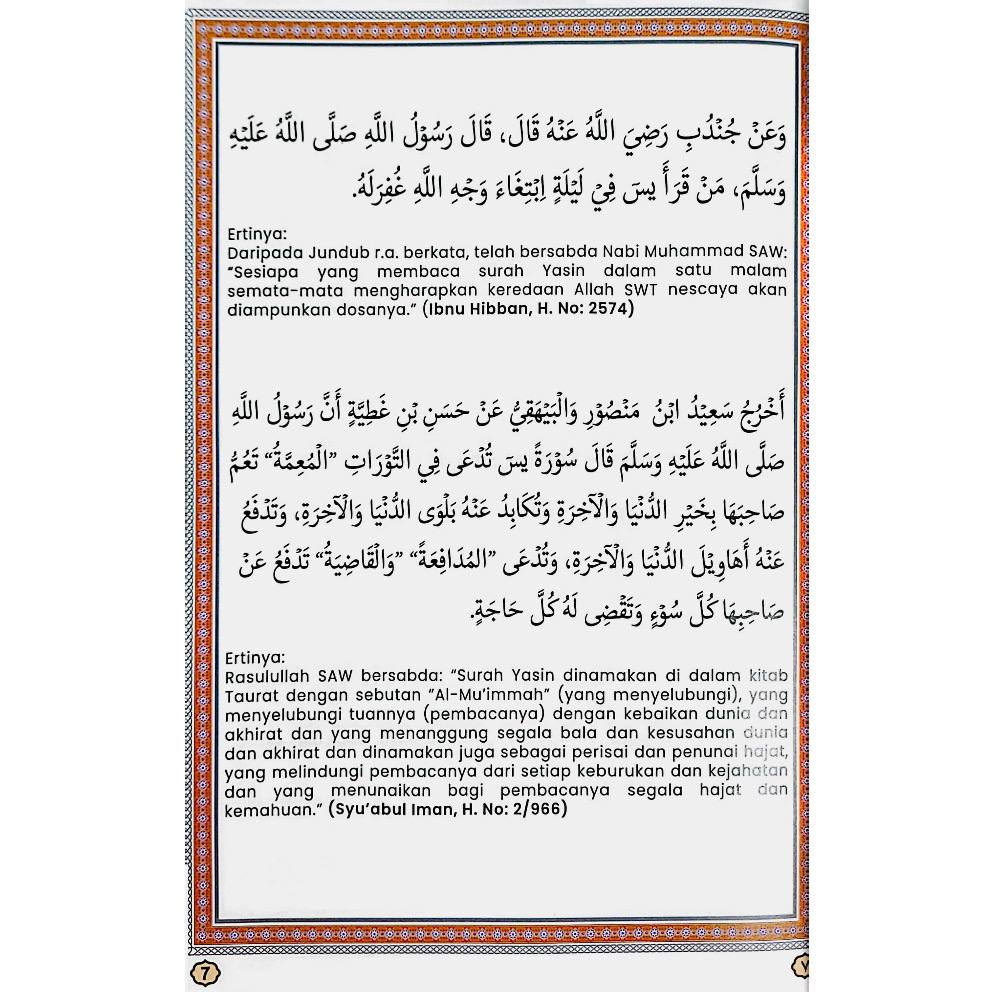 وَعَنْ جُنْدُبِ رَضِيَ اللَّهُ عَنْهُ قَالَ، قَالَ رَسُوْلُ اللَّهِ صَلَّى اللَّهُ عَلَيْهِ
وَسَلَّمَ، مَنْ قَرَأَ يسٓ فِيْ لَيْلَةٍ اِبْتِغَاءَ وَجْهِ اللَّهِ غُفِرَلَهُ.
Ertinya:
Daripada Jundub r.a. berkata, telah bersabda Nabi Muhammad SAW:
“Sesiapa yang membaca surah Yasin dalam satu malam
semata-mata mengharapkan keredaan Allah SWT nescaya akan
diampunkan dosanya.” (Ibnu Hibban, H. No: 2574)
أَخْرُجُ سَعِيْدُ ابْنُ مَنْصُوْرِ وَالْبَيْهَقِيُّ عَنْ حَسَنِ بْنِ غَطِيَّةٍ أَنَّ رَسُوْلُ اللَّهِ
صَلَّى اللَّهُ عَلَيْهِ وَسَلَّمَ قَالَ سُوْرَةً يسٓ تُدْعَى فِي التَّوْرَاتِ ”الْمُعِمَّةُ“ تَعُمُّ
صَاحِبَهَا بِخَيْرِ الدُّنْيَا وَالْآخِرَةِ وَتُكَابِدُ عَنْهُ بَلْوَى الدُّنْيَا وَالْآخِرَةِ، وَتَدْفَعُ
عَنْهُ أَهَاوِيْلَ الدُّنْيَا وَالْآخِرَةِ، وَتُدْعَى ”المُدَافِعَةً“ ”وَالْقَاضِيَةُ“ تَدْفَعُ عَنْ
صَاحِبِهَا كُلَّ سُوْءٍ وَتَقْضِى لَهُ كُلَّ حَاجَةٍ.
Ertinya:
Rasulullah SAW bersabda: “Surah Yasin dinamakan di dalam kitab
Taurat dengan sebutan “Al-Mu’immah” (yang menyelubungi), yang
menyelubungi tuannya (pembacanya) dengan kebaikan dunia dan
akhirat dan yang menanggung segala bala dan kesusahan dunia
dan akhirat dan dinamakan juga sebagai perisai dan penunai hajat,
yang melindungi pembacanya dari setiap keburukan dan kejahatan
dan yang menunaikan bagi pembacanya segala hajat dan
kemahuan.” (Syu’abul Iman, H. No: 2/966)
7
٧